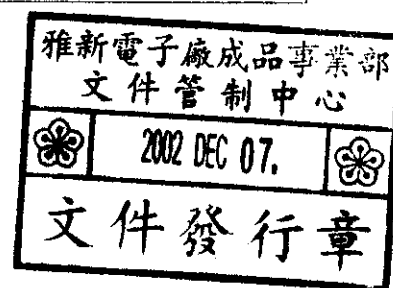 雅新電子廠成品事業部
文件管制中心
2002 DEC 07.
文件發行章